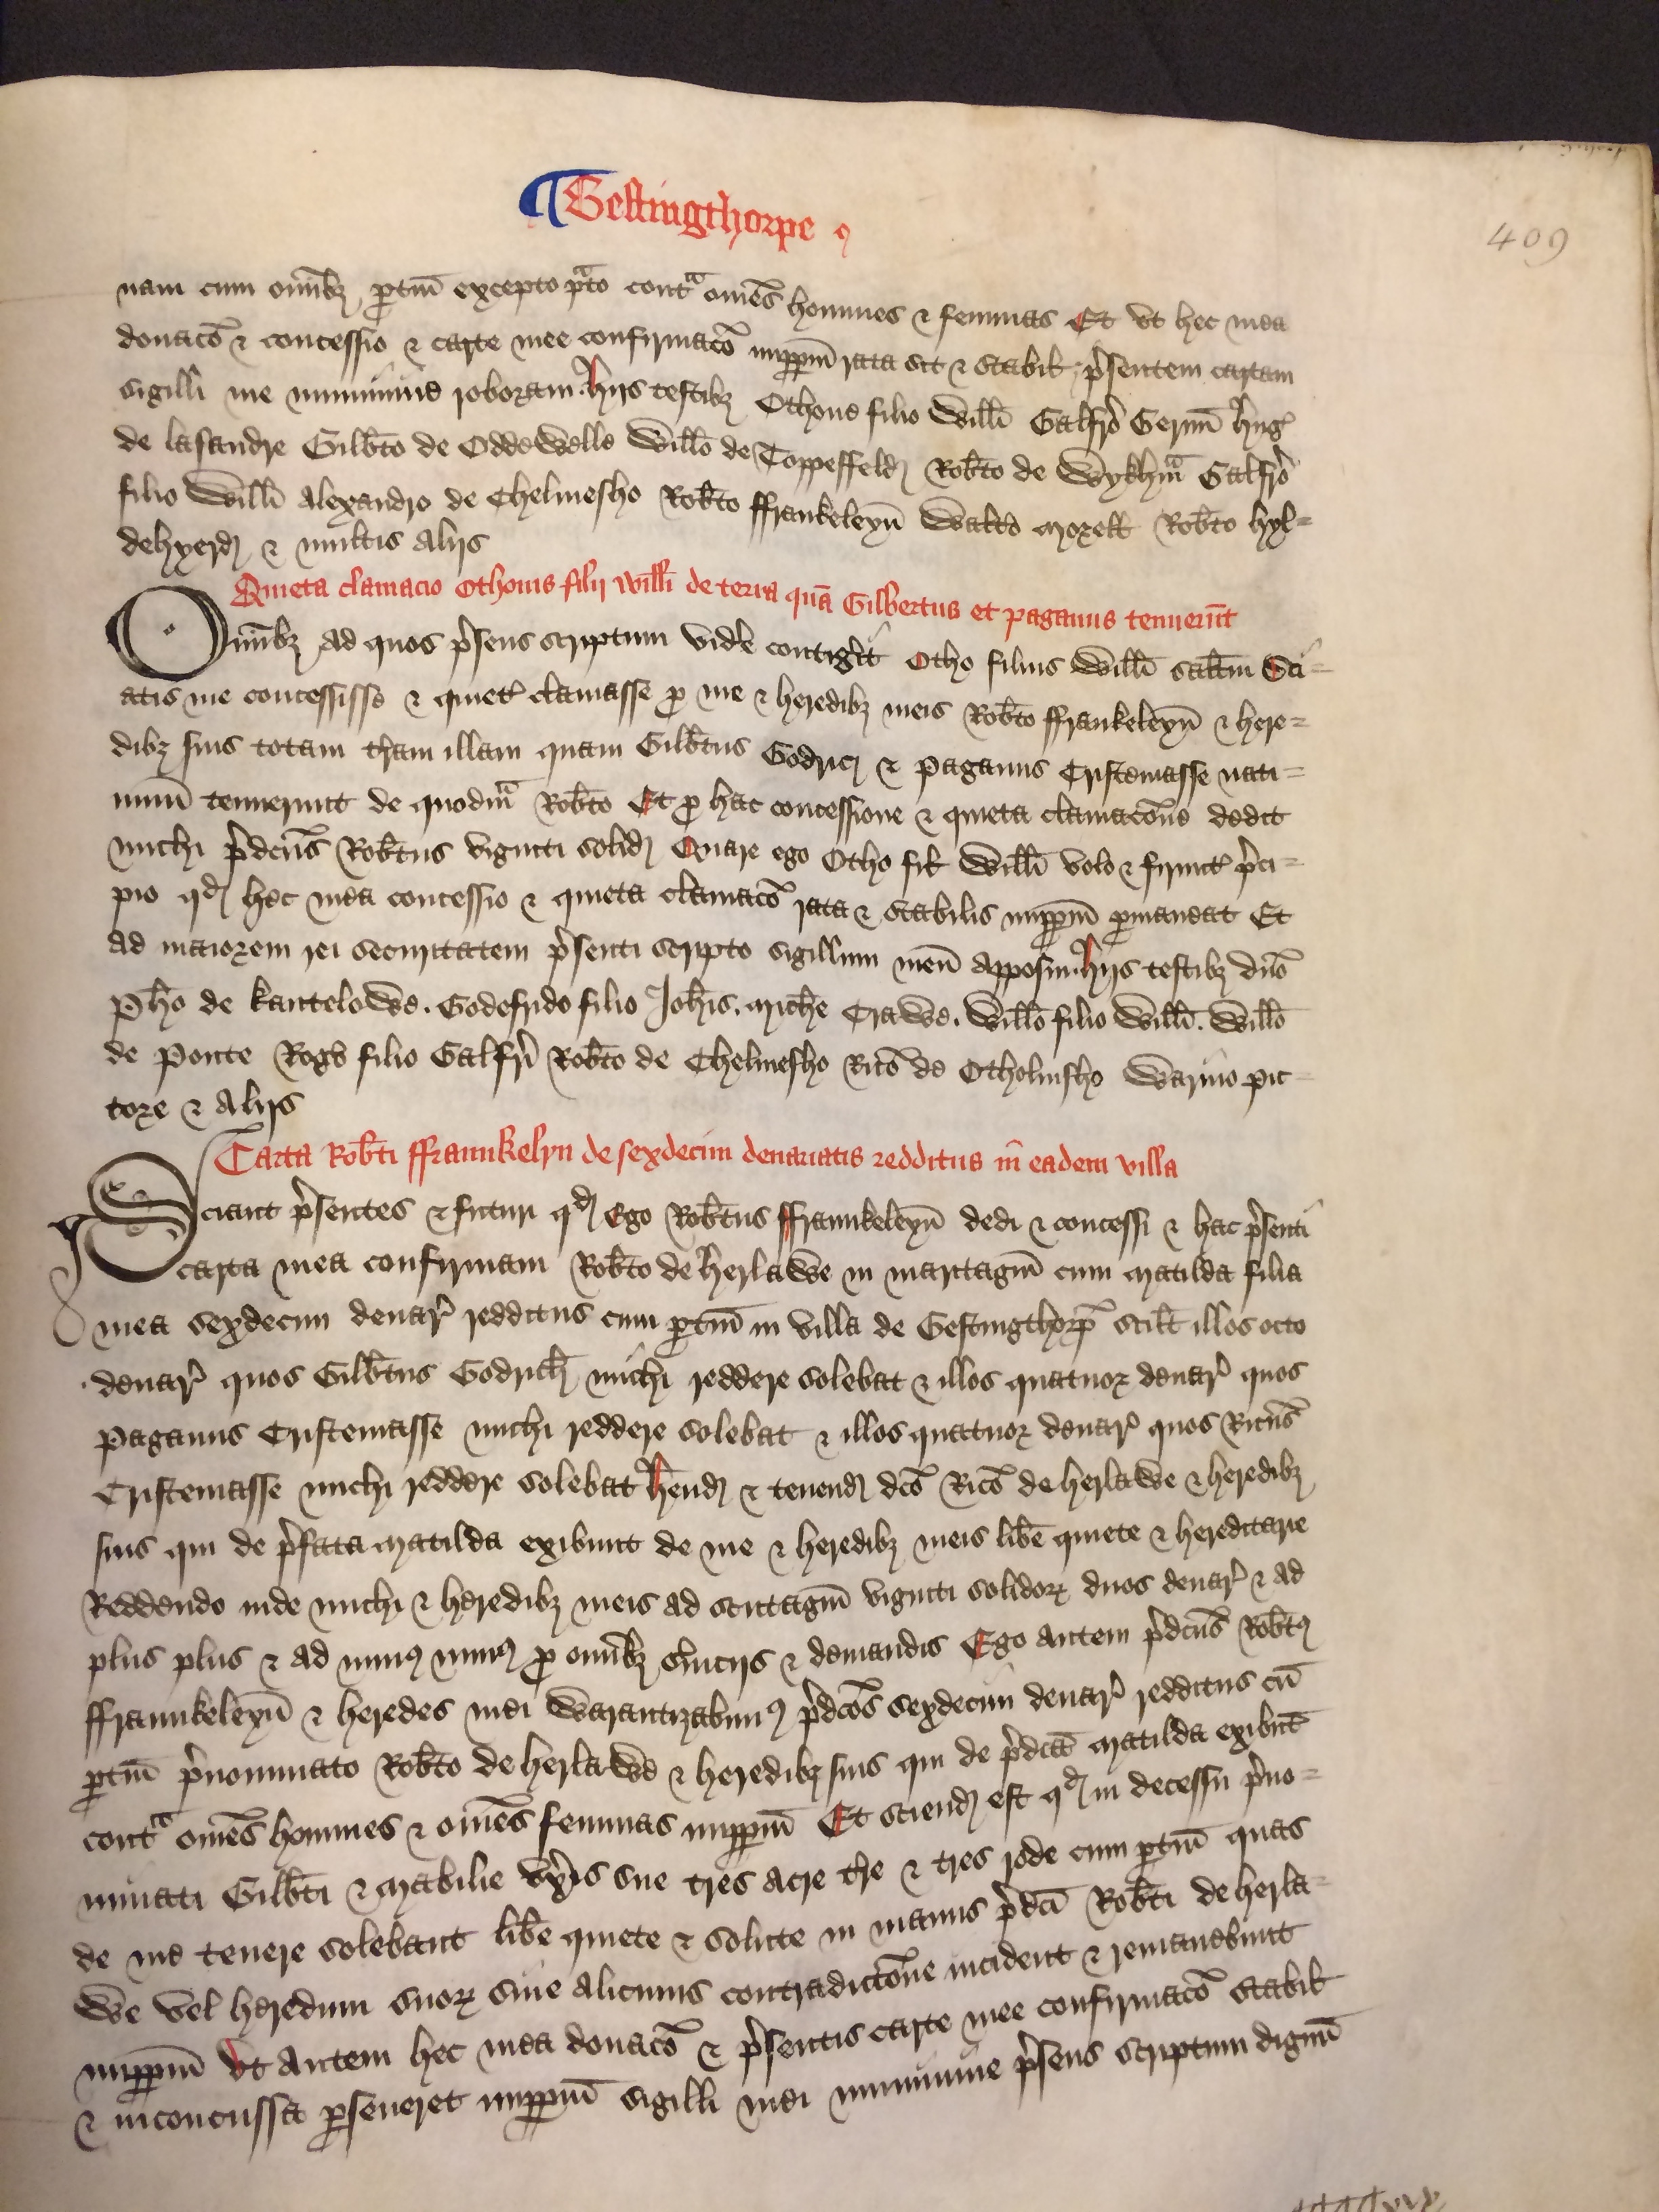 ¶ Gestingthorpe
409
nam cum om̄ibȝ ꝑtin̄ excepto prato contra om̄es homines ⁊ feminas Et vt hec mea
donac̄o ⁊ concessio ⁊ carte mee confirmac̄o imꝑpm̄ rata sit ⁊ stabil̄ p̄sentem cartam
sigilli me munimine roboraui. hijs testibȝ Othone filio Willi Galfr̄o Germ̄ huḡ
de lasandre Gilbt̄o de Oddewelle Willo de Toppesfeld Robt̄o de Wykhm̄ Galfr̄o
filio Willi Alexandro de Chelmesho Robt̄o ffrankeleyn̄ Walt̄o Morell Robt̄o hyl=
dehyerd ⁊ multis alijs
Quieta clamacio Othonis filij Willi de terra quā Gilbertus et paganus tenuer̄nt
Om̄ibȝ ad quos p̄sens scriptum vid̄e contiḡit Otho filius Willi sal̄tm Sci=
atis me concessisse ⁊ quiet̄ clamasse ꝑ me ⁊ heredibȝ meis Robt̄o ffrankeleyn̄ ⁊ here=
dibȝ suis totam t̄ram illam quam Gilbt̄us Godric̄ ⁊ Paganus Cristemasse nati=
uum̄ tenuerunt de quodm̄ Robt̄o Et ꝓ hac concessione ⁊ quieta clamac̄one dedit
michi p̄dc̄us Robt̄us viginti solid̄ Quare ego Otho fil̄ Willi volo ⁊ firmit̄ p̄ci=
pio qd̄ hec mea concessio ⁊ quieta clamac̄o rata ⁊ stabilis imꝑpm̄ ꝑmaneat Et
ad maiorem rei securitatem p̄senti scripto sigillum meū apposui. hijs testibȝ dn̄o
Ph̄o de kantelowe. Godefrido filio Joh̄is. Mich̄e Crawe. Willo filio Willi. Willo
de Ponte Roḡo filio Galfr̄i Robt̄o de Chelmesho Ric̄o de Otholmsho Warino pic=
tore ⁊ alijs
Carta Robt̄i ffraunkelyn de sexdecim denariatis redditus in eadem villa
Sciant p̄sentes ⁊ futuri qd̄ Ego Robt̄us ffraunkeleyn̄ dedi ⁊ concessi ⁊ hac p̄senti
carta mea confirmaui Robt̄o de herlawe in maritagm̄ cum Matilda filia
mea sexdecim denar̄ redditus cum ꝑtin̄ in villa de Gestingthorp̄ scil̄t illos octo
denar̄ quos Gilbt̄us Godrich̄ michi reddere solebat ⁊ illos quatuor denar̄ quos
Paganus Cristemasse michi reddere solebat ⁊ illos quatuor denar̄ quos Ric̄us
Cristemasse michi reddere solebat hend̄ ⁊ tenend̄ dc̄o Ric̄o de herlawe ⁊ heredibȝ
suis qui de p̄fata Matilda exibunt de me ⁊ heredibȝ meis lib̄e quiete ⁊ hereditarie
Reddendo inde michi ⁊ heredibȝ meis ad scutagm̄ viginti solidoꝝ duos denar̄ ⁊ ad
plus plus ⁊ ad minꝰ minꝰ ꝓ om̄ibȝ s̄uicijs ⁊ demandis Ego autem p̄dc̄us Robt̄ꝰ
ffraunkeleyn̄ ⁊ heredes mei Warantizabimꝰ p̄dc̄os sexdecim denar̄ redditus cū
ꝑtin̄ p̄nominato Robt̄o de herlawe ⁊ heredibȝ suis qui de p̄dict̄ Matilda exibūt
contra om̄es homines ⁊ om̄es feminas imꝑpm̄ Et sciend̄ est qd̄ in decessu p̄no=
minati Gilbt̄i ⁊ Mabilie vx̄is sue tres acre t̄re ⁊ tres rode cum ꝑtin̄ quas
de me tenere solebant lib̄e quiete ⁊ solute in manus p̄dc̄i Robt̄i de herla=
we vel heredum suoꝝ sine alicuius contradicc̄one incident ⁊ remanebunt
imꝑpm̄ Vt autem hec mea donac̄o ⁊ p̄sentis carte mee confirmac̄o stabil̄
⁊ inconcussa ꝑseueret imꝑpm̄ sigilli mei munimine p̄sens scriptum dignū